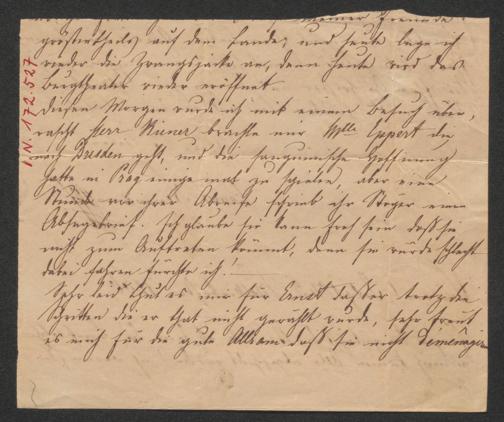 meiner Freunde
größtentheils auf dem Lande, und heute lege ich
wieder die Zwangsjacke an, denn heute wird das
Burgtheater wieder eröffnet.
Diesen Morgen wurde ich mit einem Besuch über-
rascht Herr brachte mir Mlle Eppert die
nach Dresden geht, und die sanguinische Hoffnung
hatte in Prag einige mal zu spielen, aber eine
Stunde vor ihrer Abreise schrieb ihr Stöger einen
Absagebrief. Ich glaube sie kann froh sein daß sie
nicht zum Auftreten kömmt, denn sie würde schlecht
dabei fahren fürchte ich!
Sehr leid thut es mir für Ernst daß er trotz der
Schritten die er that nicht gewählt wurde, sehr freut
es mich für die gute Allram daß sie nicht
I.N. 172.527